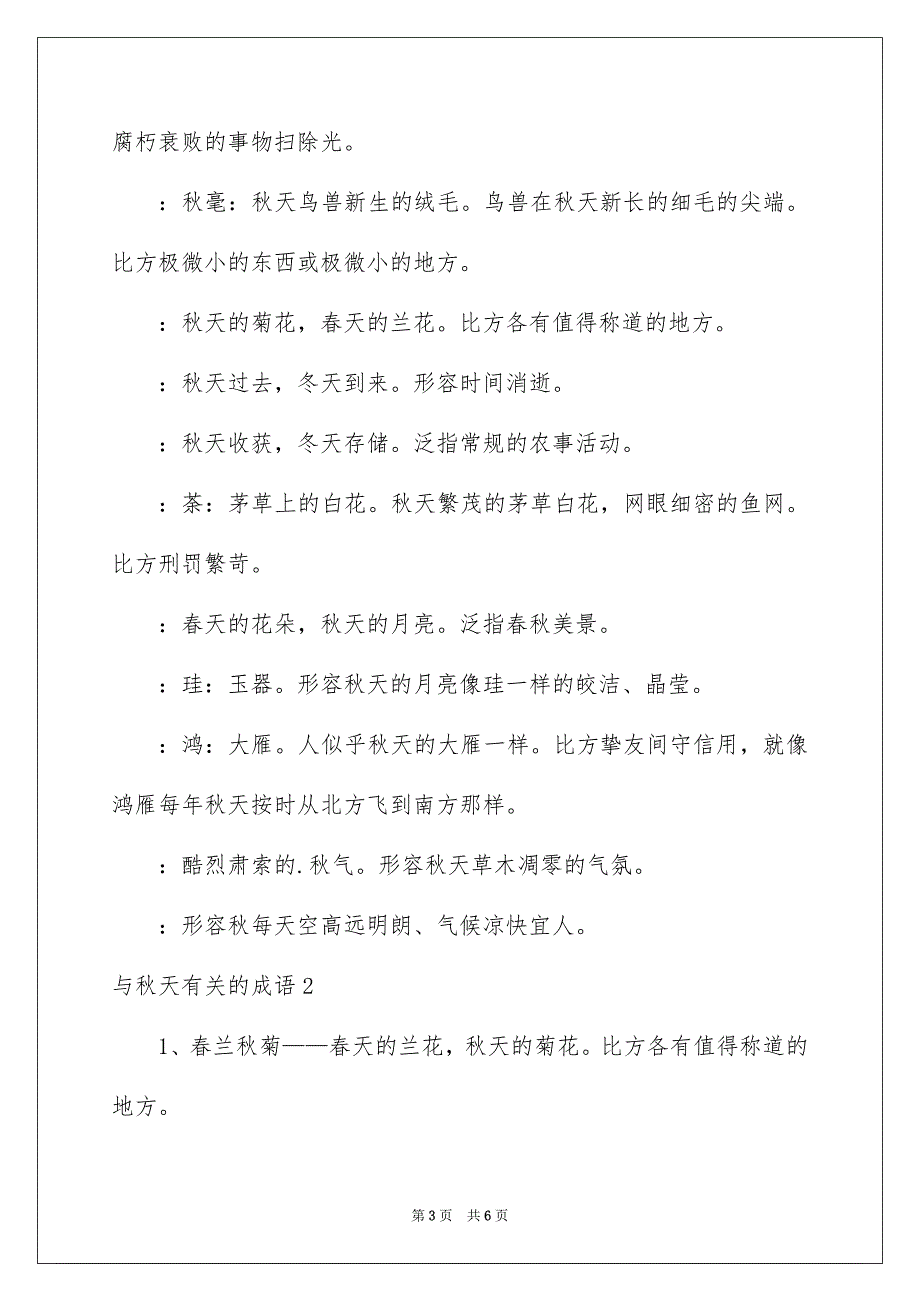 腐朽衰败的事物扫除光。
：秋毫：秋天鸟兽新生的绒毛。鸟兽在秋天新长的细毛的尖端。
比方极微小的东西或极微小的地方。
：秋天的菊花，春天的兰花。比方各有值得称道的地方。
：秋天过去，冬天到来。形容时间消逝。
：秋天收获，冬天存储。泛指常规的农事活动。
：茶：茅草上的白花。秋天繁茂的茅草白花，网眼细密的鱼网。
比方刑罚繁苛。
：春天的花朵，秋天的月亮。泛指春秋美景。
：珪：玉器。形容秋天的月亮像珪一样的皎洁、晶莹。
：鸿：大雁。人似乎秋天的大雁一样。比方挚友间守信用，就像
鸿雁每年秋天按时从北方飞到南方那样。
：酷烈肃索的.秋气。形容秋天草木凋零的气氛。
：形容秋每天空高远明朗、气候凉快宜人。
与秋天有关的成语2
1、春兰秋菊——春天的兰花，秋天的菊花。比方各有值得称道的
地方。
第3页 共6页